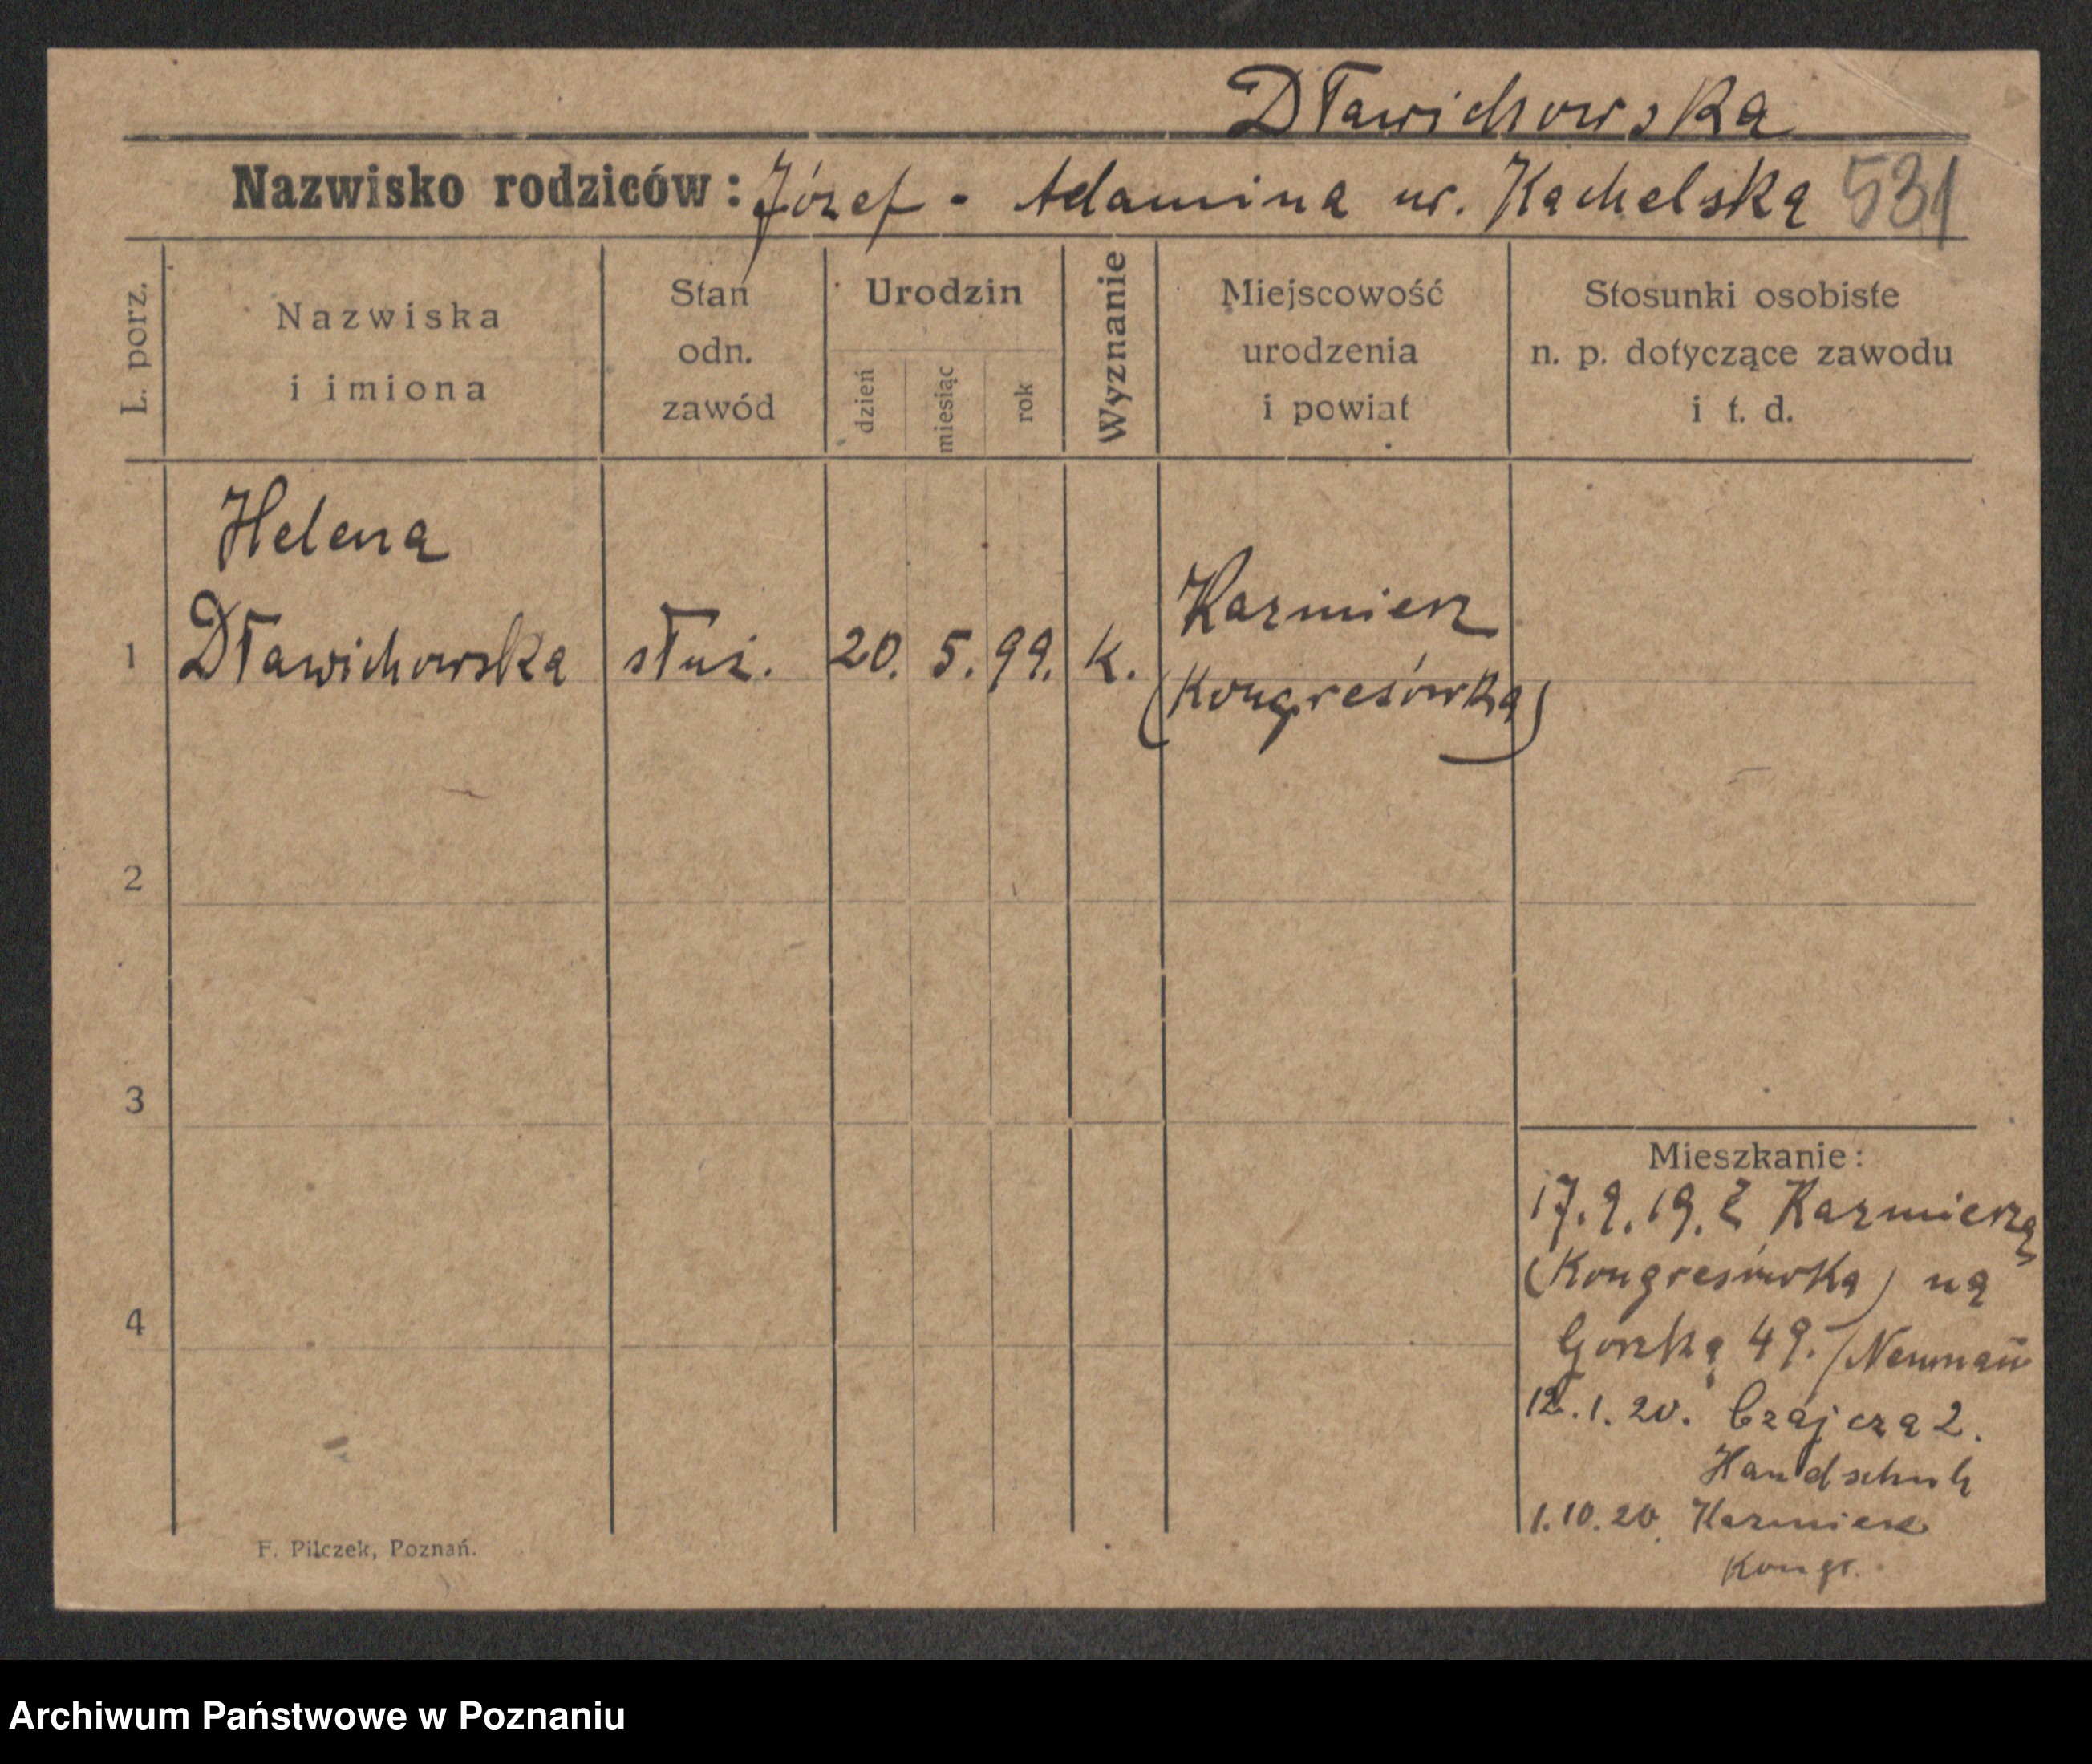 Dławichowska
Nazwisko rodziców: Józef - Adamina ur. Kachelska 531
L. porz.
Nazwiska
i imiona
Stan
odn.
zawód
Urodzin
dzień
miesiąc
rok
Wyznanie
Miejscowość
urodzenia
i powiat
Stosunki osobiste
n. p. dotyczące zawodu
i t. d.
Helena
1 Dławichowska służ. 20. 5. 99. K. Kazmierz
(Kongresówka)
2
3
4
Mieszkanie:
17.9.19. Z Kazmierza
(Kongresówka) na
49. / Neumann
12.1.20. 2.
Handschuh
1.10.20. Kazmierz
Kongr.
F. Pilczek, Poznań.
Archiwum Państwowe w Poznaniu